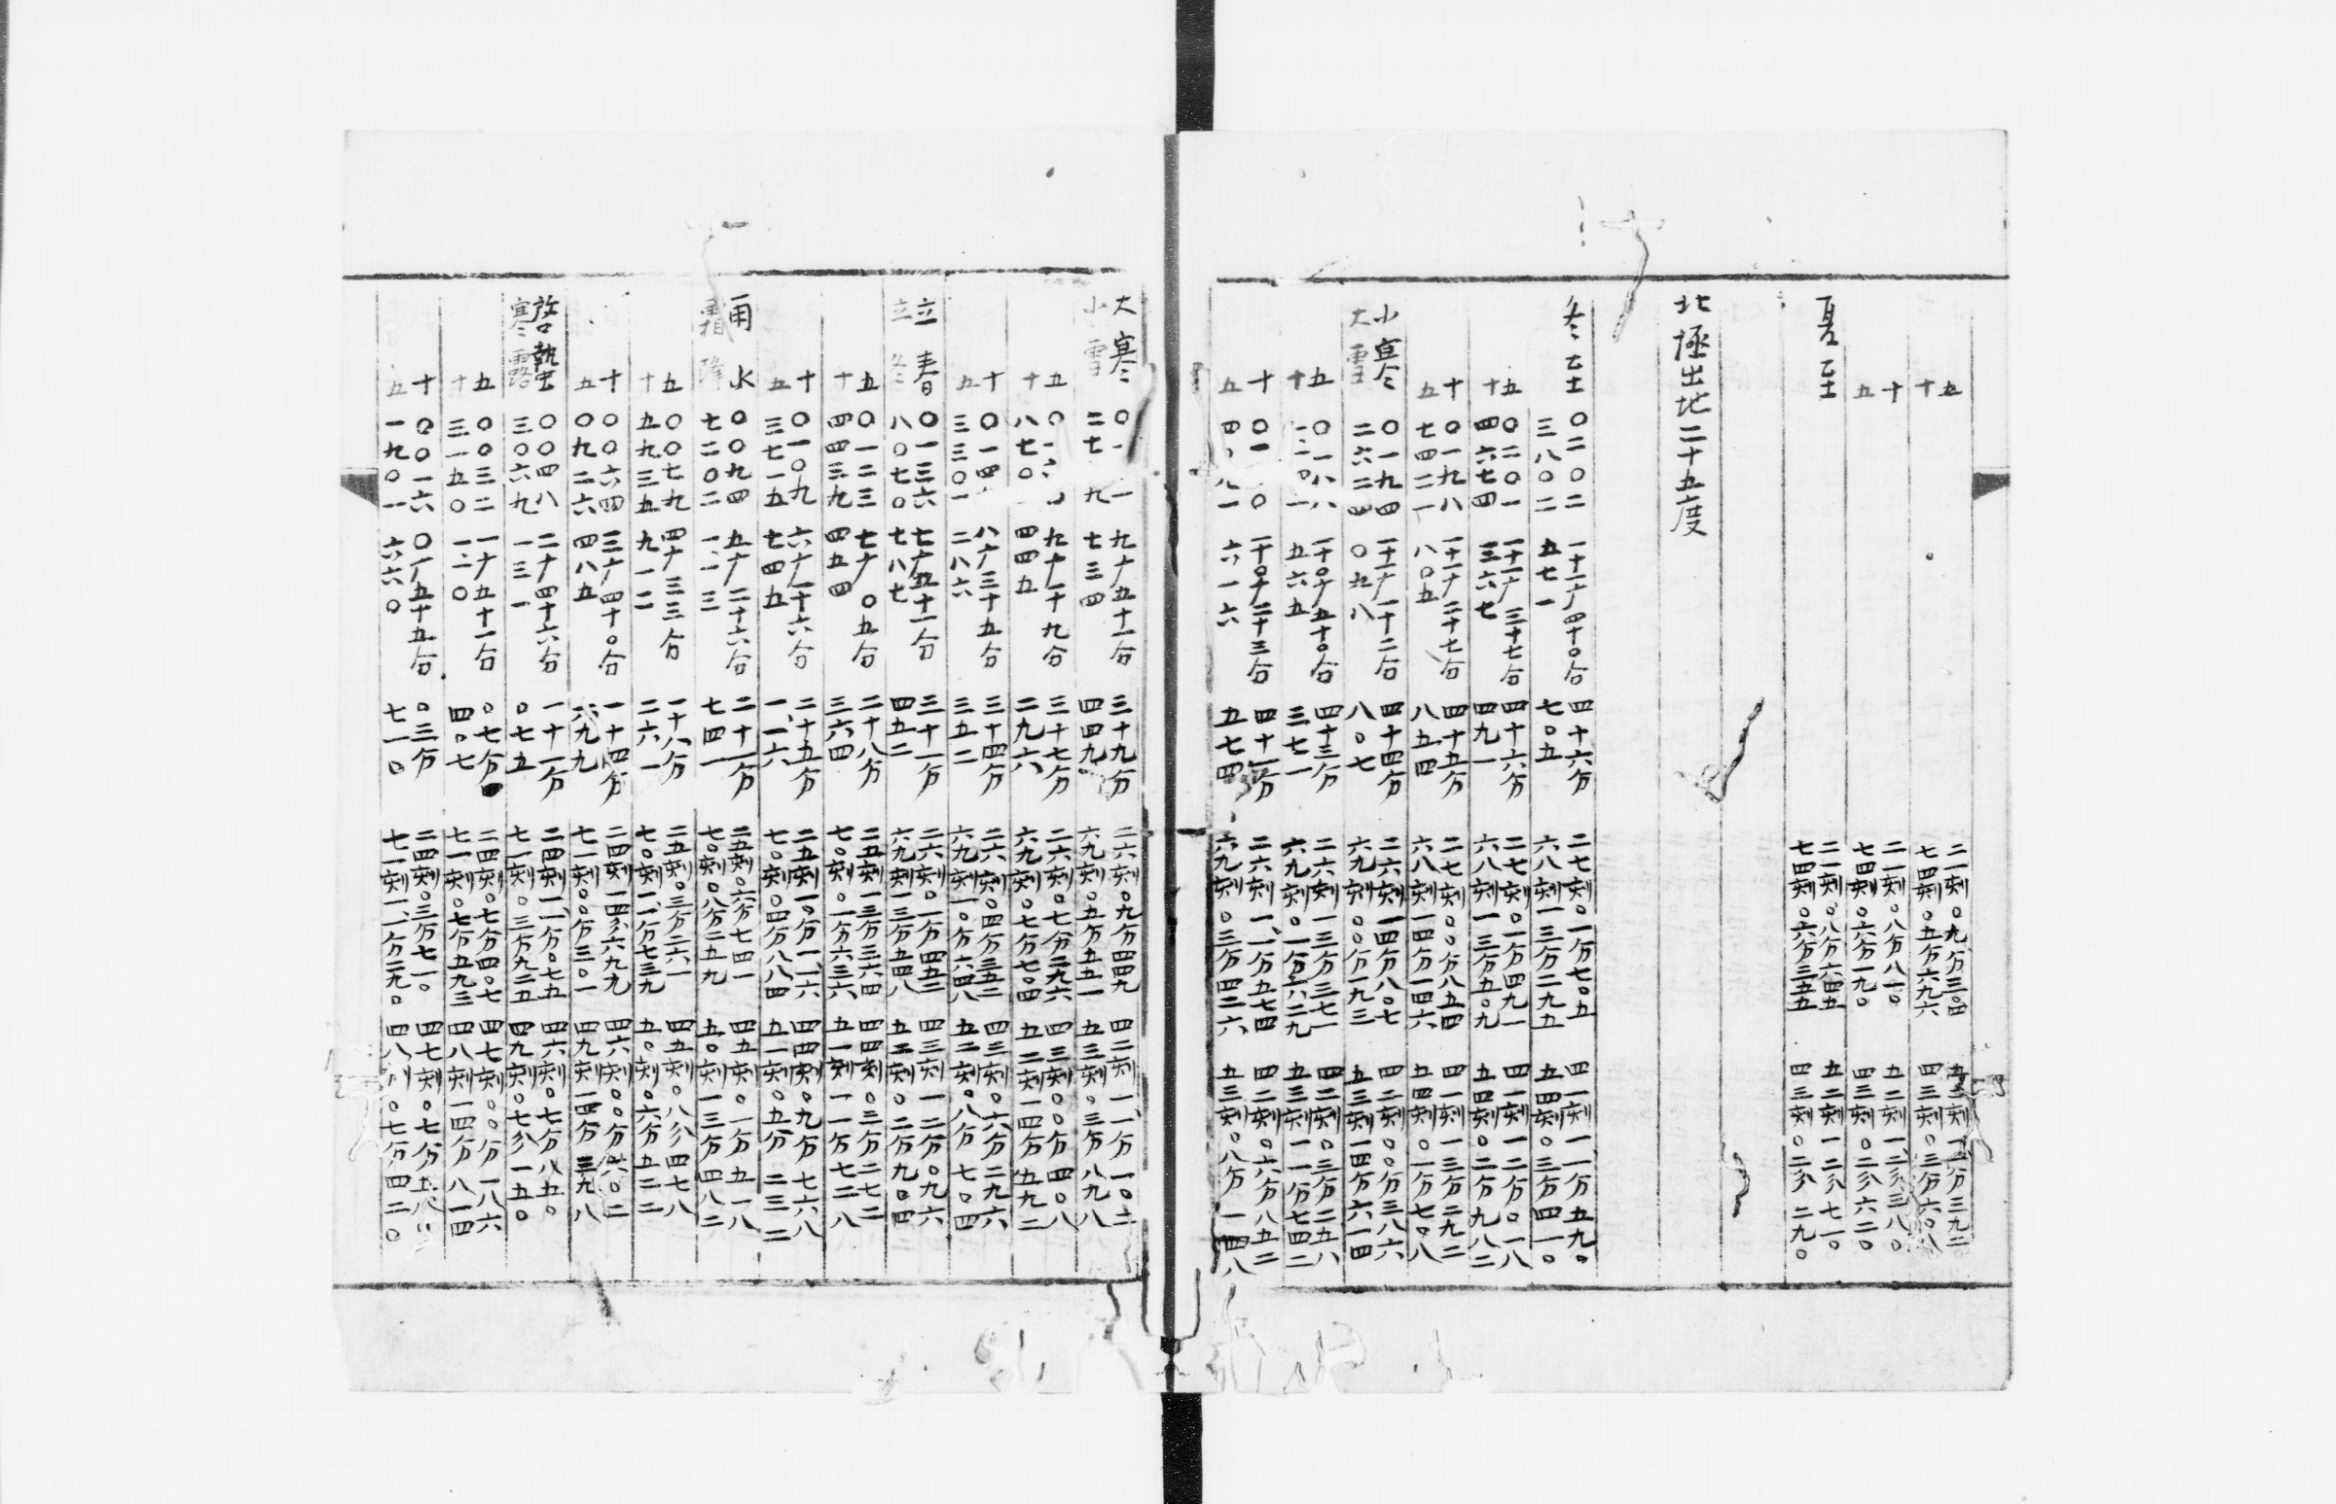 五 二一刻〇九分三〇四
十 七四刻〇五分六九六 四三刻〇三分六〇八
十 二一刻〇八分八一〇 五二刻
五 七四刻〇六分一九〇 四三刻〇二分六二〇
夏至 二一刻〇八分六四五 五二刻一二分七一〇
七四刻〇六分三五五 四三刻〇二分二九〇
北極出地二十五度
冬至 〇二〇〇二 一十一度四十〇分 四十六分 二七刻〇一分七〇五 四一刻一一分五九〇
三八〇二 五七一 七〇五 六八刻一三分二九五 五四刻〇三分四一〇
五 〇二〇一 一十一度三十七分 四十六分 二七刻〇一分四九一 四一刻一二分〇一八
十 四六七四 三六七 四九一 六八刻一三分五〇九 五四刻〇二分九八二
十 〇一九八 一十一度二十七分 四十五分 二七刻〇〇分八五四 四一刻一三分二九二
五 七四二一 八〇五 八五四 六八刻一四分一四六 五四刻〇一分七〇八
小寒 〇一九四 一十一度一十二分 四十四分 二六刻一四分八〇七 四二刻〇〇分三八六
大雪 二六二四 〇九八 八〇七 六九刻〇〇分一九三 五三刻一四分六一四
五 〇一八八 一十〇度五十〇分 四十三分 二六刻一三分三七一 四二刻〇三分二五八
十 五六五 三七一 六九刻〇一分六二九 五三刻一一分七四二
十 一十〇度二十三分 四十一分 二六刻一一分五七四 四二刻〇六分八五二
五 六一六 五七四 六九刻〇三分四二六 五三刻〇八分一四八
大寒 九度五十一分 三十九分 二六刻〇九分四四九 四二刻一一分一〇二
小雪 七三四 四四九 六九刻〇五分五五一 五三刻〇三分八九八
五 九度一十九分 三十七分 二六刻〇七分二九六 四三刻〇〇分四〇八
十 八七〇 四四五 二九六 六九刻〇七分七〇四 五二刻一四分五九二
十 〇一四 八度三十五分 三十四分 二六刻〇四分三五二 四三刻〇六分二九六
五 三三〇一 二八六 三五二 六九刻一〇分六四八 五二刻〇八分七〇四
立春 〇一三六 七度五十一分 三十一分 二六刻〇一分四五二 四三刻一二分〇九六
立冬 八〇七〇 七八七 四五二 六九刻一三分五四八 五二刻〇二分九〇四
五 〇一二三 七度〇五分 二十八分 二五刻一三分三六四 四四刻〇三分二七二
十 四四三九 四五四 三六四 七〇刻〇一分六三六 五一刻一一分七二八
十 〇一〇九 六度一十六分 二十五分 二五刻一〇分一一六 四四刻〇九分七六八
五 三七一五 七四五 一一六 七〇刻〇四分八八四 五一刻〇五分二三二
雨水 〇〇九四 五度二十六分 二十一分 二五刻〇六分七四一 四五刻〇一分五一八
霜降 七二〇二 一一三 七四一 七〇刻〇八分二五九 五〇刻一三分四八二
五 〇〇七九 四度三三分 一十八分 二五刻〇三分二六一 四五刻〇八分四七八
十 五九三五 九一二 二六一 七〇刻一一分七三九 五〇刻〇六分五二二
十 〇〇六四 三度四十〇分 一十四分 二四刻一四分六九九 四六刻〇〇分六〇二
五 〇九二六 四八五 六九九 七一刻〇〇分三〇一 四九刻一四分三九八
啓蟄 〇〇四八 二度四十六分 一十一分 二四刻一一分〇七五 四六刻〇七分八五〇
寒露 三〇六九 一三一 〇七五 七一刻〇三分九二五 四九刻〇七分一五〇
五 〇〇三二 一度五十一分 〇七分 二四刻〇七分四〇七 四七刻〇〇分一八六
十 三一五〇 一二〇 四〇七 七一刻〇七分五九三 四八刻一四分八一四
十 〇〇一六 〇度五十五分 〇三分 二四刻〇三分七一〇 四七刻〇七分五八〇
五 一九〇一 六六〇 七一〇 七一刻一一分二九〇 四八刻〇七分四二〇